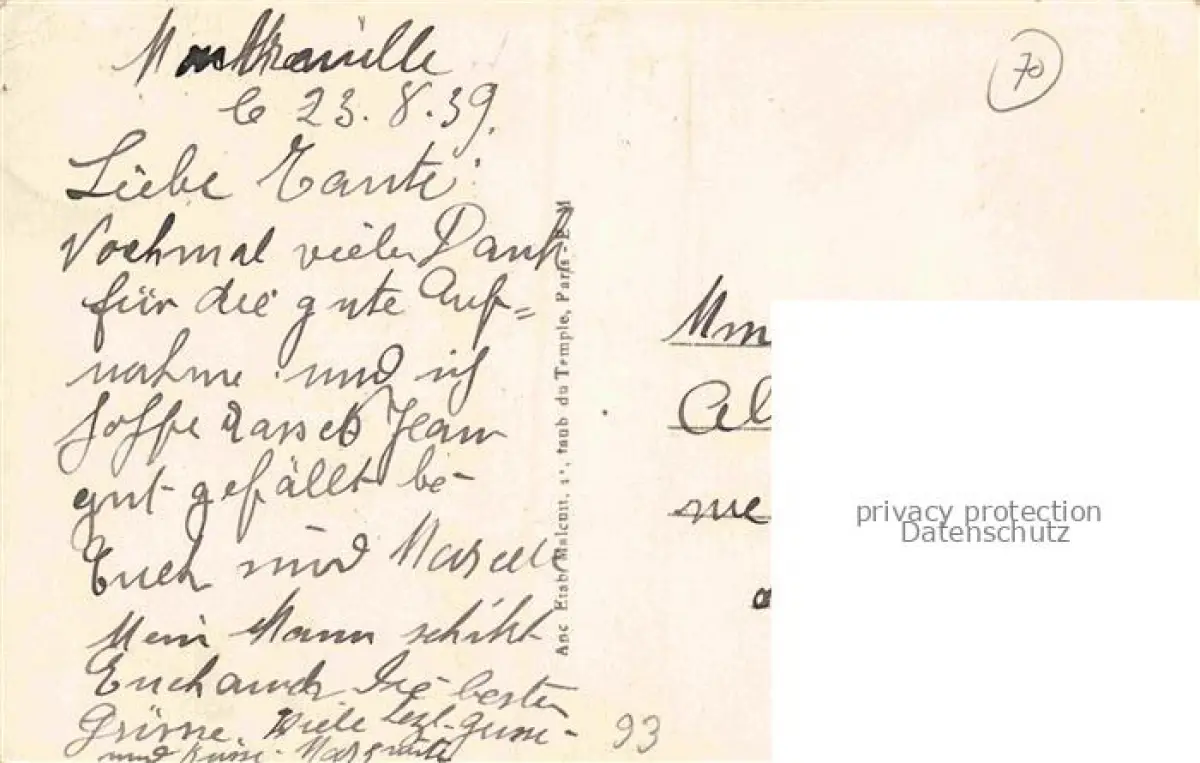 le 23.8.39.
Liebe Tante:
Nochmal vielen Dank
für die gute Auf=
nahme und ich
hoffe dass es Jean
gut gefällt be-
Euch und Marcel
Mein Mann schikt
Euch auch die besten
Grüsse. Viele
und Küsse.
70
Anc Etab Malcuit, faub du Temple, Paris
Mm
Al
me
93
privacy protection
Datenschutz